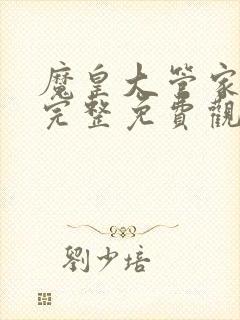 魔皇大管家
完整免費觀
劉少培